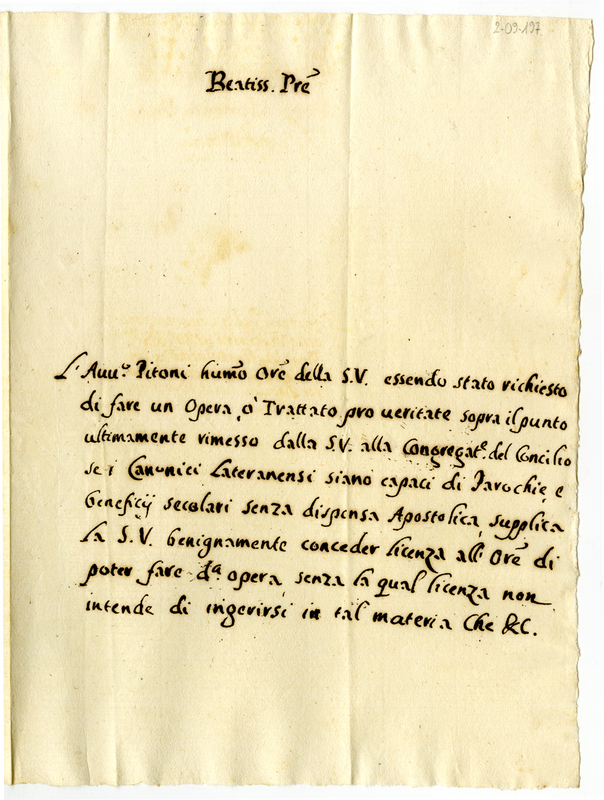 2-09-197
Beatiss. Prẽ
L'Auu.º Pitoni humõ Orẽ della S.V. essendo stato richiesto
di fare un Opera, ò Trattato pro ueritate sopra il punto
ultimamente rimesso dalla S.V. alla Congregat.e del Concilio
se i Canonici Lateranensi siano capaci di Parochie, e
beneficij secolari senza dispensa Apostolica, supplica
la S.V. benignamente conceder licenza all' Orẽ di
poter fare d.ª opera, senza la qual licenza non
intende di ingerirsi in tal materia Che &C.